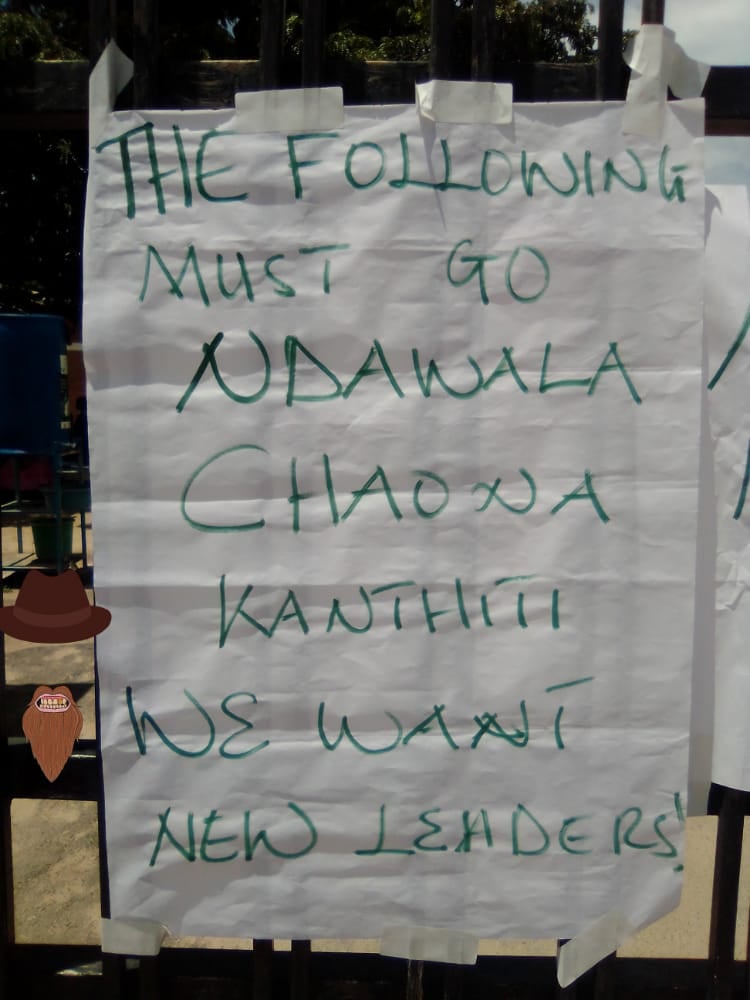 THE FOLLOWING
MUST GO
NDAWALA
CHAONA
KANTHITI
WE WANT
NEW LEADERS!